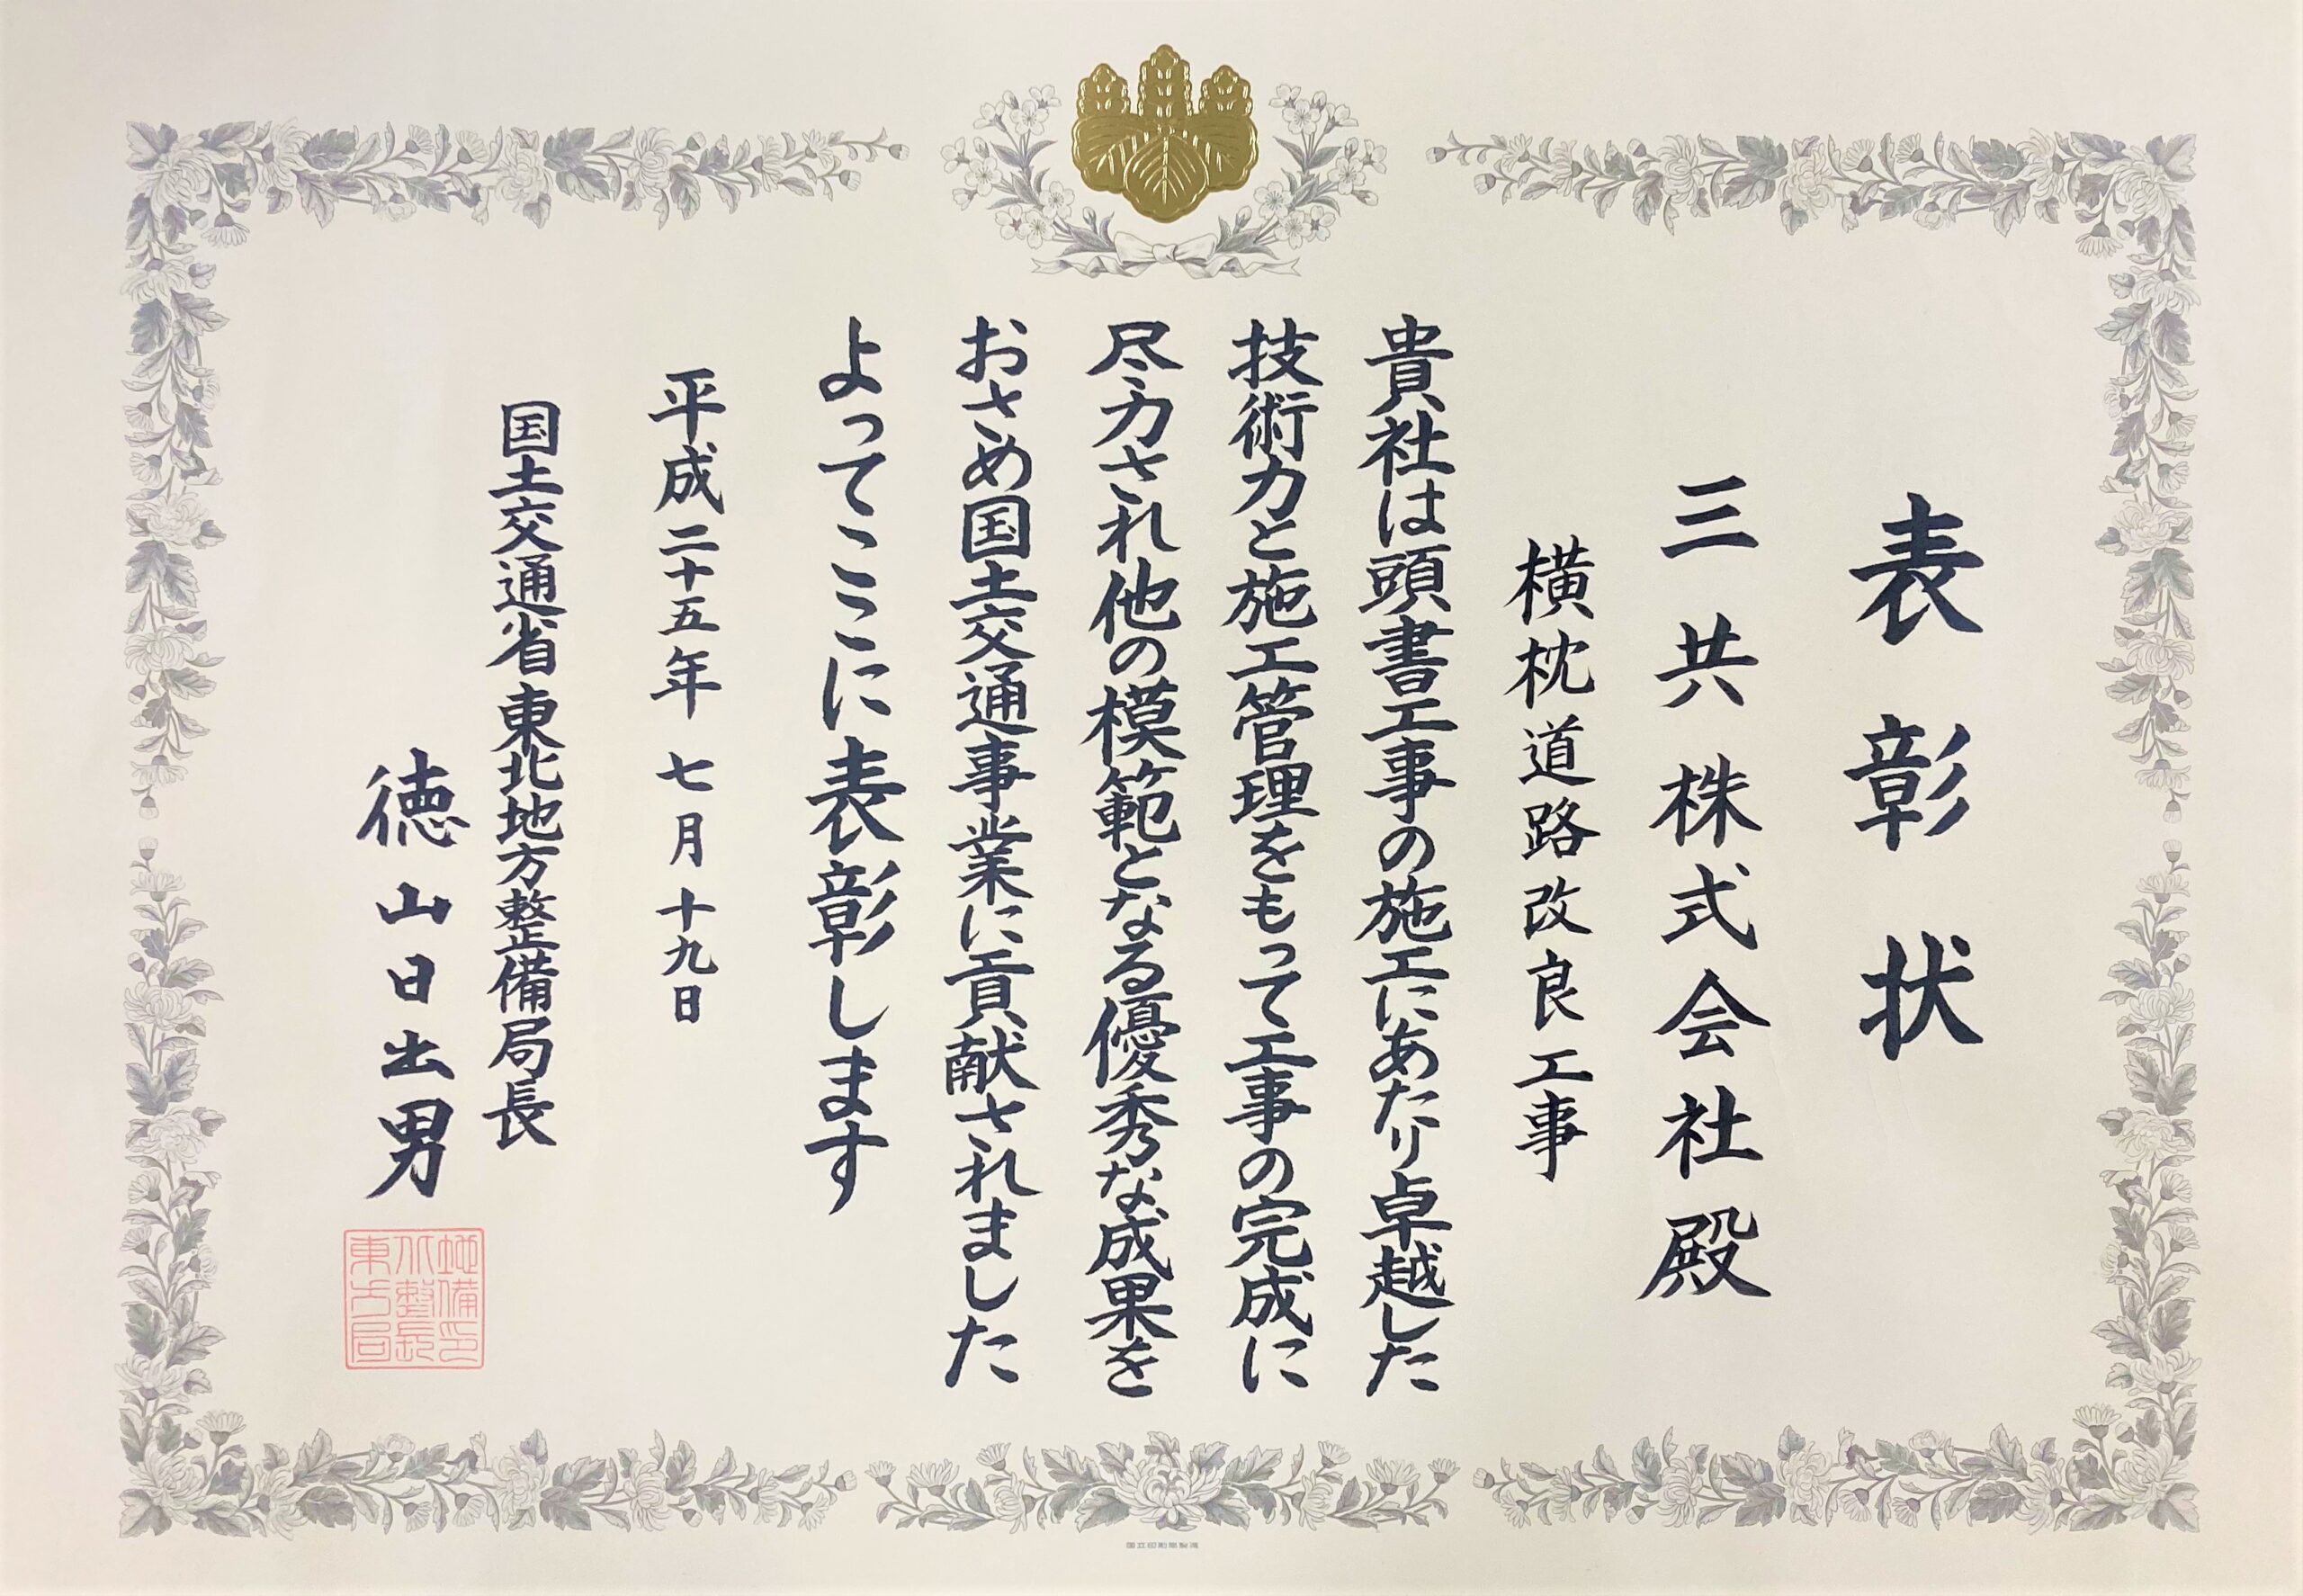 表彰状
三共株式会社殿
横枕道路改良工事
貴社は頭書工事の施工にあたり卓越した
技術力と施工管理をもって工事の完成に
尽力され他の模範となる優秀な成果を
おさめ国土交通事業に貢献されました
よってここに表彰します
平成二十五年七月十九日
国土交通省東北地方整備局長
徳山日出男
地備印
北整長
東方局
国立印刷局製造